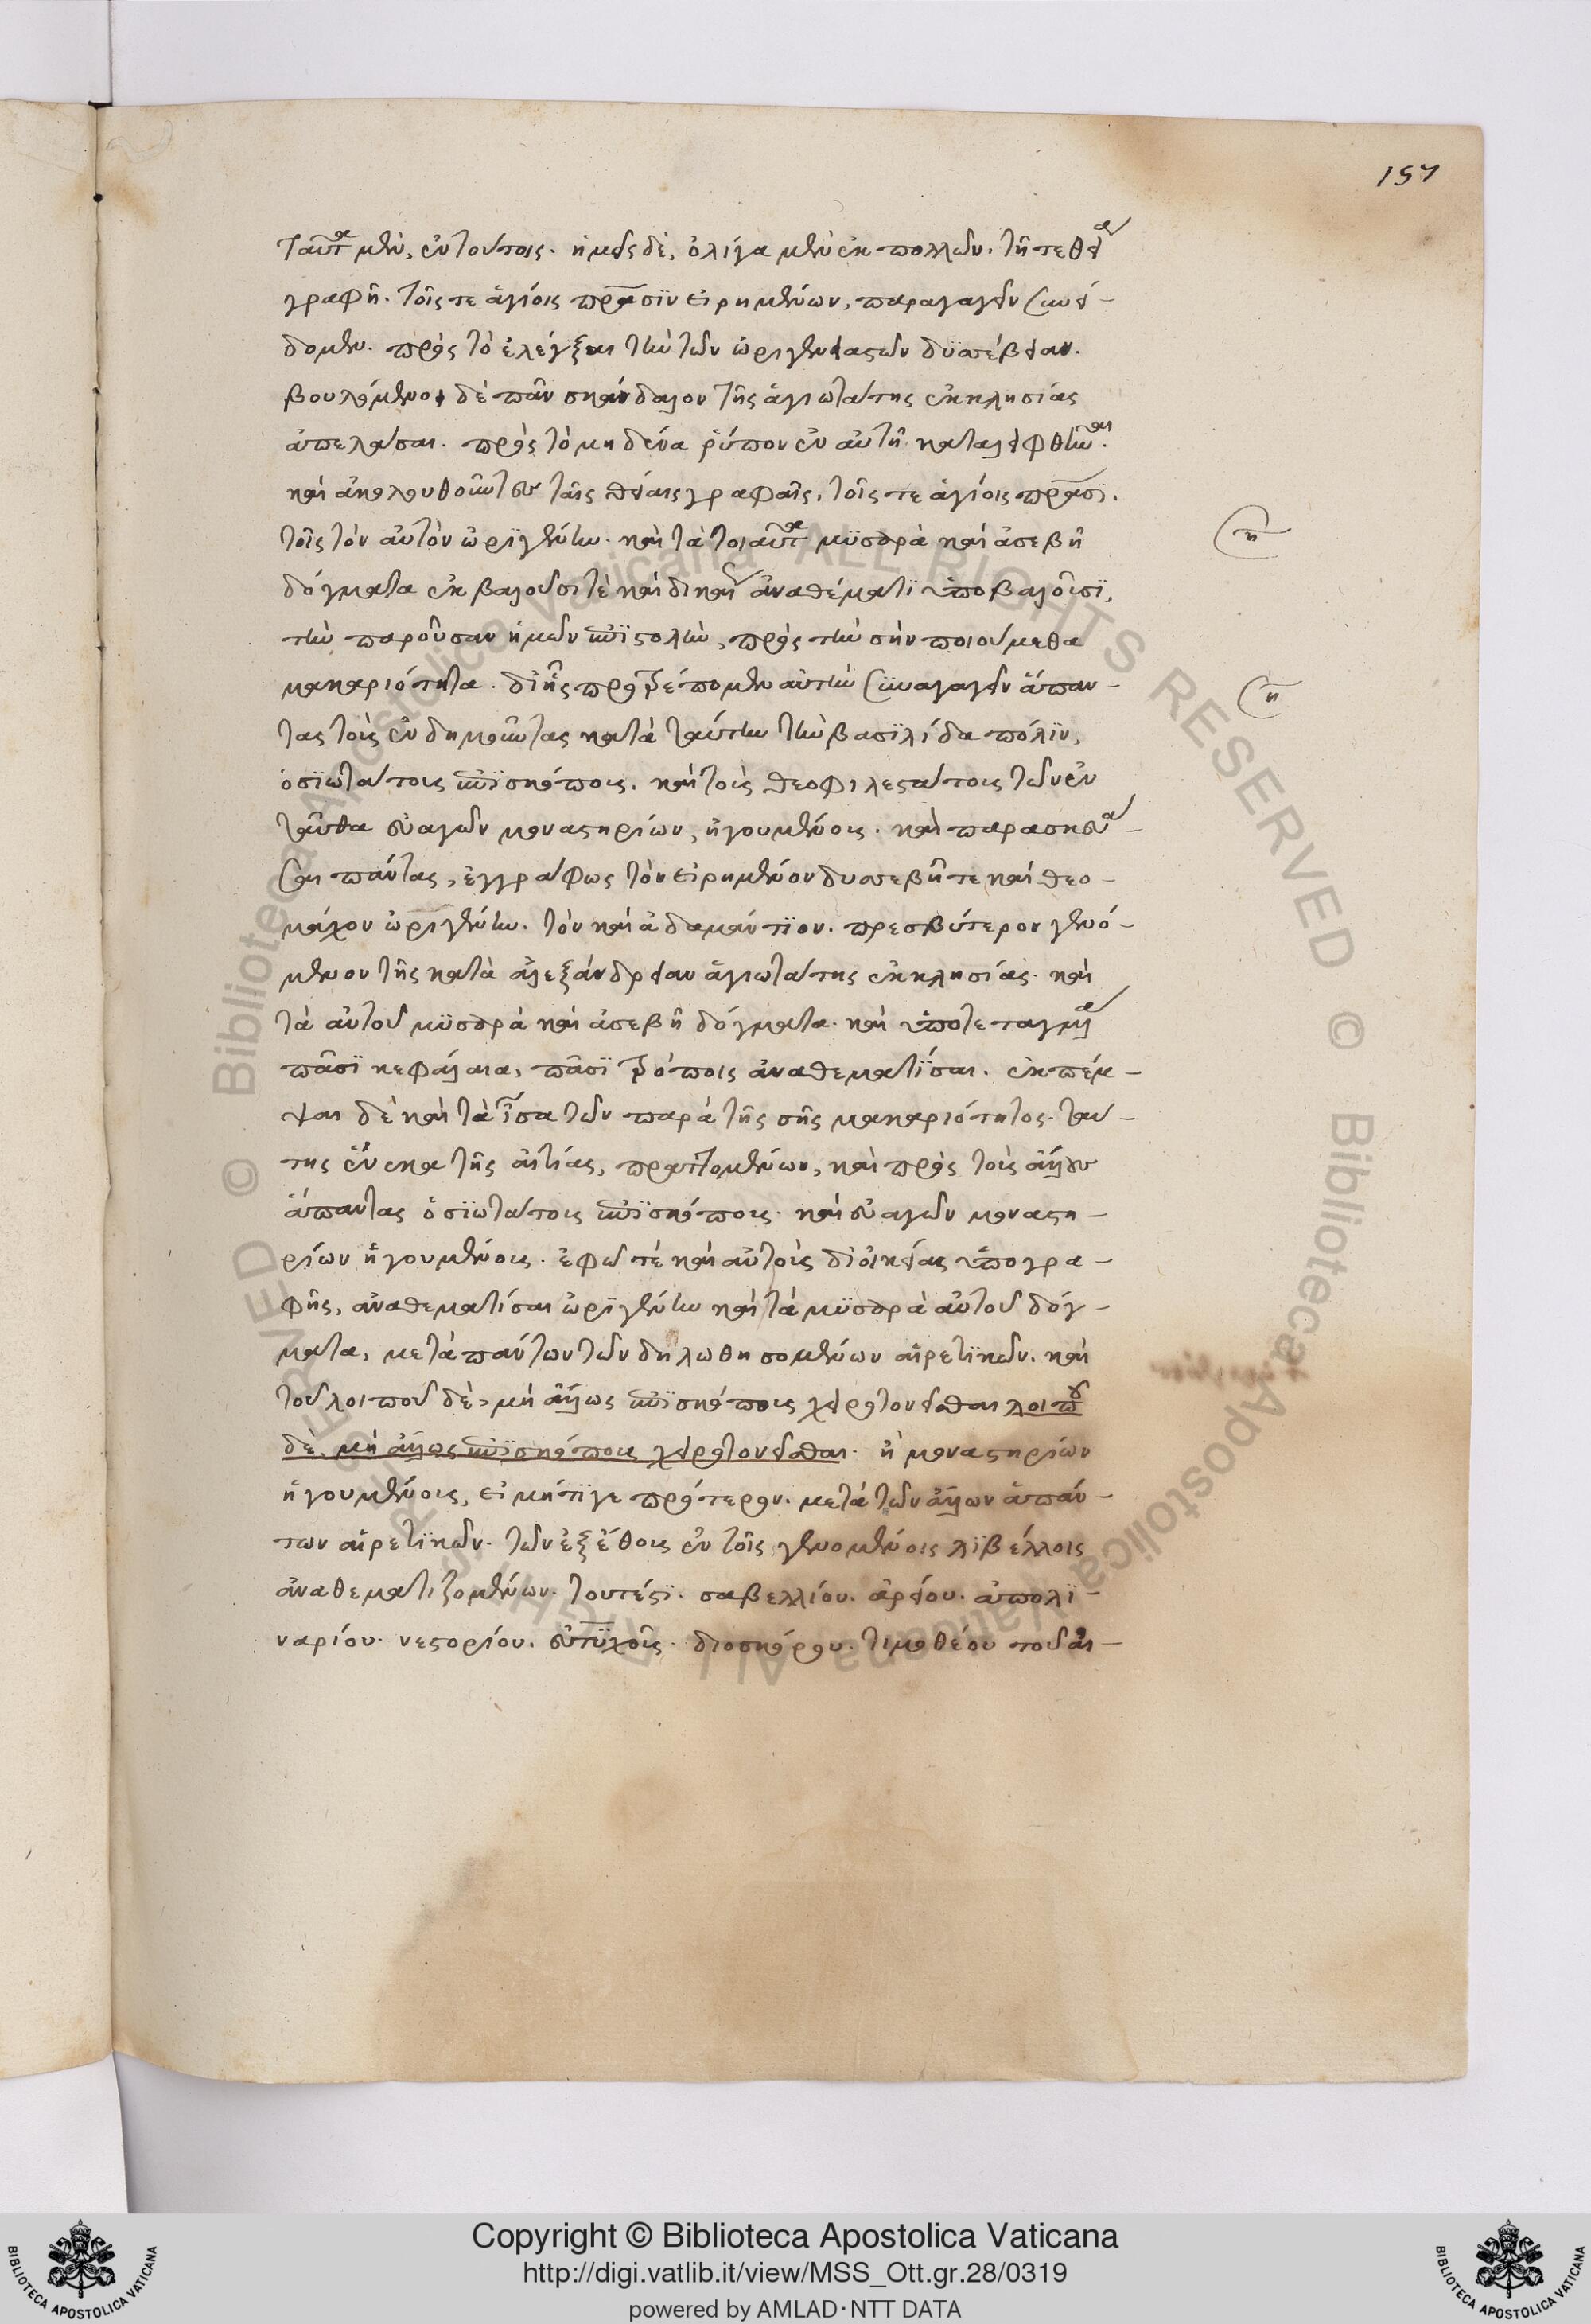 157
ταῦτα μὲν, ἐν τούτοις. ἡμεῖς δὲ, ὀλίγα μὲν ἐκ πολλῶν. τῇ τε θεία
γραφῆ. τοῖς τε ἁγίοις πρᾱσϊν εἰρημένων, παραγαγεῖν συνεί-
δομεν. πρὸς τὸ ἐλέγξαι τὴν τῶν ὠριγενιαστῶν δυσσέβειαν.
βουλόμενοι δὲ πᾶν σκάνδαλον τῆς ἁγιωτάτης ἐκκλησίας
ἀπελάσαι. πρὸς τὸ μηδένα ῥύπον ἐν αὐτῇ καταλειφθῆναι.
καὶ ἀκολουθοῦντες ταῖς θείαις γραφαῖς, τοῖς τε ἁγίοις πρᾱσϊ.
τοῖς τὸν αὐτὸν ὠρϊγένην. καὶ τὰ τοιαῦτα μϋσαρὰ καὶ ἀσεβῆ
δόγματα ἐκβαλοῦσι τὲ καὶ δικαίῳ ἀναθέματϊ ὑποβαλοῦσϊ,
τὴν παροῦσαν ἡμῶν ἐπϊστολὴν, πρὸς τὴν σὴν ποιούμεθα
μακαριότητα. δι' ἧς προτρέπομεν αὐτὴν συναγαγεῖν ἅπαν-
τας τοὺς ἐνδημοῦντας κατὰ ταύτην τὴν βασϊλίδα πόλϊν,
ὁσϊωτάτους ἐπϊσκόπους. καὶ τοὺς θεοφιλεστάτους τῶν ἐν
ταῦθα εὐαγῶν μοναστηρίων, ἡγουμένους. καὶ παρασκευά-
σαι πάντας, ἐγγράφως τὸν εἰρημένον δυσσεβῆ τε καὶ θεο-
μάχον ὠριγένην. τὸν καὶ ἀδαμάντϊον. πρεσβύτερον γενό-
μενον τῆς κατὰ ἀλεξάνδρειαν ἁγιωτάτης ἐκκλησίας. καὶ
τὰ αὐτοῦ μϋσαρὰ καὶ ἀσεβῆ δόγματα. καὶ ὑποτεταγμένα
πᾶσϊ κεφάλαια, πᾶσϊ τρόποις ἀναθεματϊσαι. ἐκπέμ-
ψαι δὲ καὶ τὰ ἶσα τῶν παρὰ τῆς σῆς μακαριότητος. ταύ-
της ἕνεκα τῆς αἰτίας, πραττομένων, καὶ πρὸς τοὺς ἄλλους
ἅπαντας ὁσϊωτάτους ἐπϊσκόπους. καὶ εὐαγῶν μοναστη-
ρίων ἡγουμένους. ἐφῶ τέ καὶ αὐτοὺς δι' οἰκείας ὑπογρα-
φῆς, ἀναθεματίσαι ὠρϊγένην καὶ τὰ μϋσαρὰ αὐτοῦ δόγ-
ματα, μετὰ πάντων τῶν δηλωθησομένων αἱρετϊκῶν. καὶ
τοῦ λοιποῦ δὲ, μὴ ἄλλως ἐπϊσκόπους χειροτονεῖσθαι λοιποῦ
δὲ, μὴ ἄλλως ἐπϊσκόπους χειροτονεῖσθαι. ἢ μοναστηρίων
ἡγουμένους, εἰ μήτϊγε πρότερον. μετὰ τῶν ἄλλων ἁπάν-
των αἱρετϊκῶν. τῶν ἐξ ἔθους ἐν τοῖς γενομένοις λϊβέλλοις
ἀναθεματιζομένων. τουτέστϊ. σαβελλίου. ἀρείου. ἀπολϊ-
ναρίου. νεστορίου. εὐτϋχοῦς. διοσκόρου. τιμοθέου τοῦ αἰ-
Copyright © Biblioteca Apostolica Vaticana
http://digi.vatlib.it/view/MSS_Ott.gr.28/0319
powered by AMLAD·NTT DATA